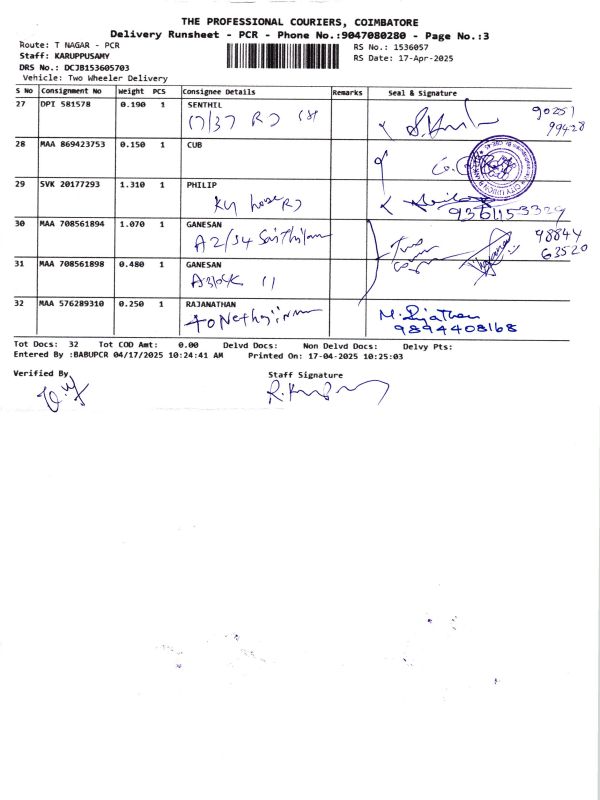 THE PROFESSIONAL COURIERS, COIMBATORE
Delivery Runsheet - PCR - Phone No.:9047080280 - Page No.:3
Route: T NAGAR - PCR
RS No.: 1536057
Staff: KARUPPUSAMY
RS Date: 17-Apr-2025
DRS No.: DCJB153605703
Vehicle: Two Wheeler Delivery
S No Consignment No Weight PCS Consignee Details Remarks Seal & Signature
27 DPI 581578 0.190 1 SENTHIL
17/37 RD
99428
28 MAA 869423753 0.150 1 CUB
29 SVK 20177293 1.310 1 PHILIP
9361153329
30 MAA 708561894 1.070 1 GANESAN
A2/34
98844
63520
31 MAA 708561898 0.480 1 GANESAN
A Block 11
32 MAA 576289310 0.250 1 RAJANATHAN
9894408168
Tot Docs: 32 Tot COD Amt: 0.00 Delvd Docs: Non Delvd Docs: Delvy Pts:
Entered By :BABUPCR 04/17/2025 10:24:41 AM Printed On: 17-04-2025 10:25:03
Verified By Staff Signature